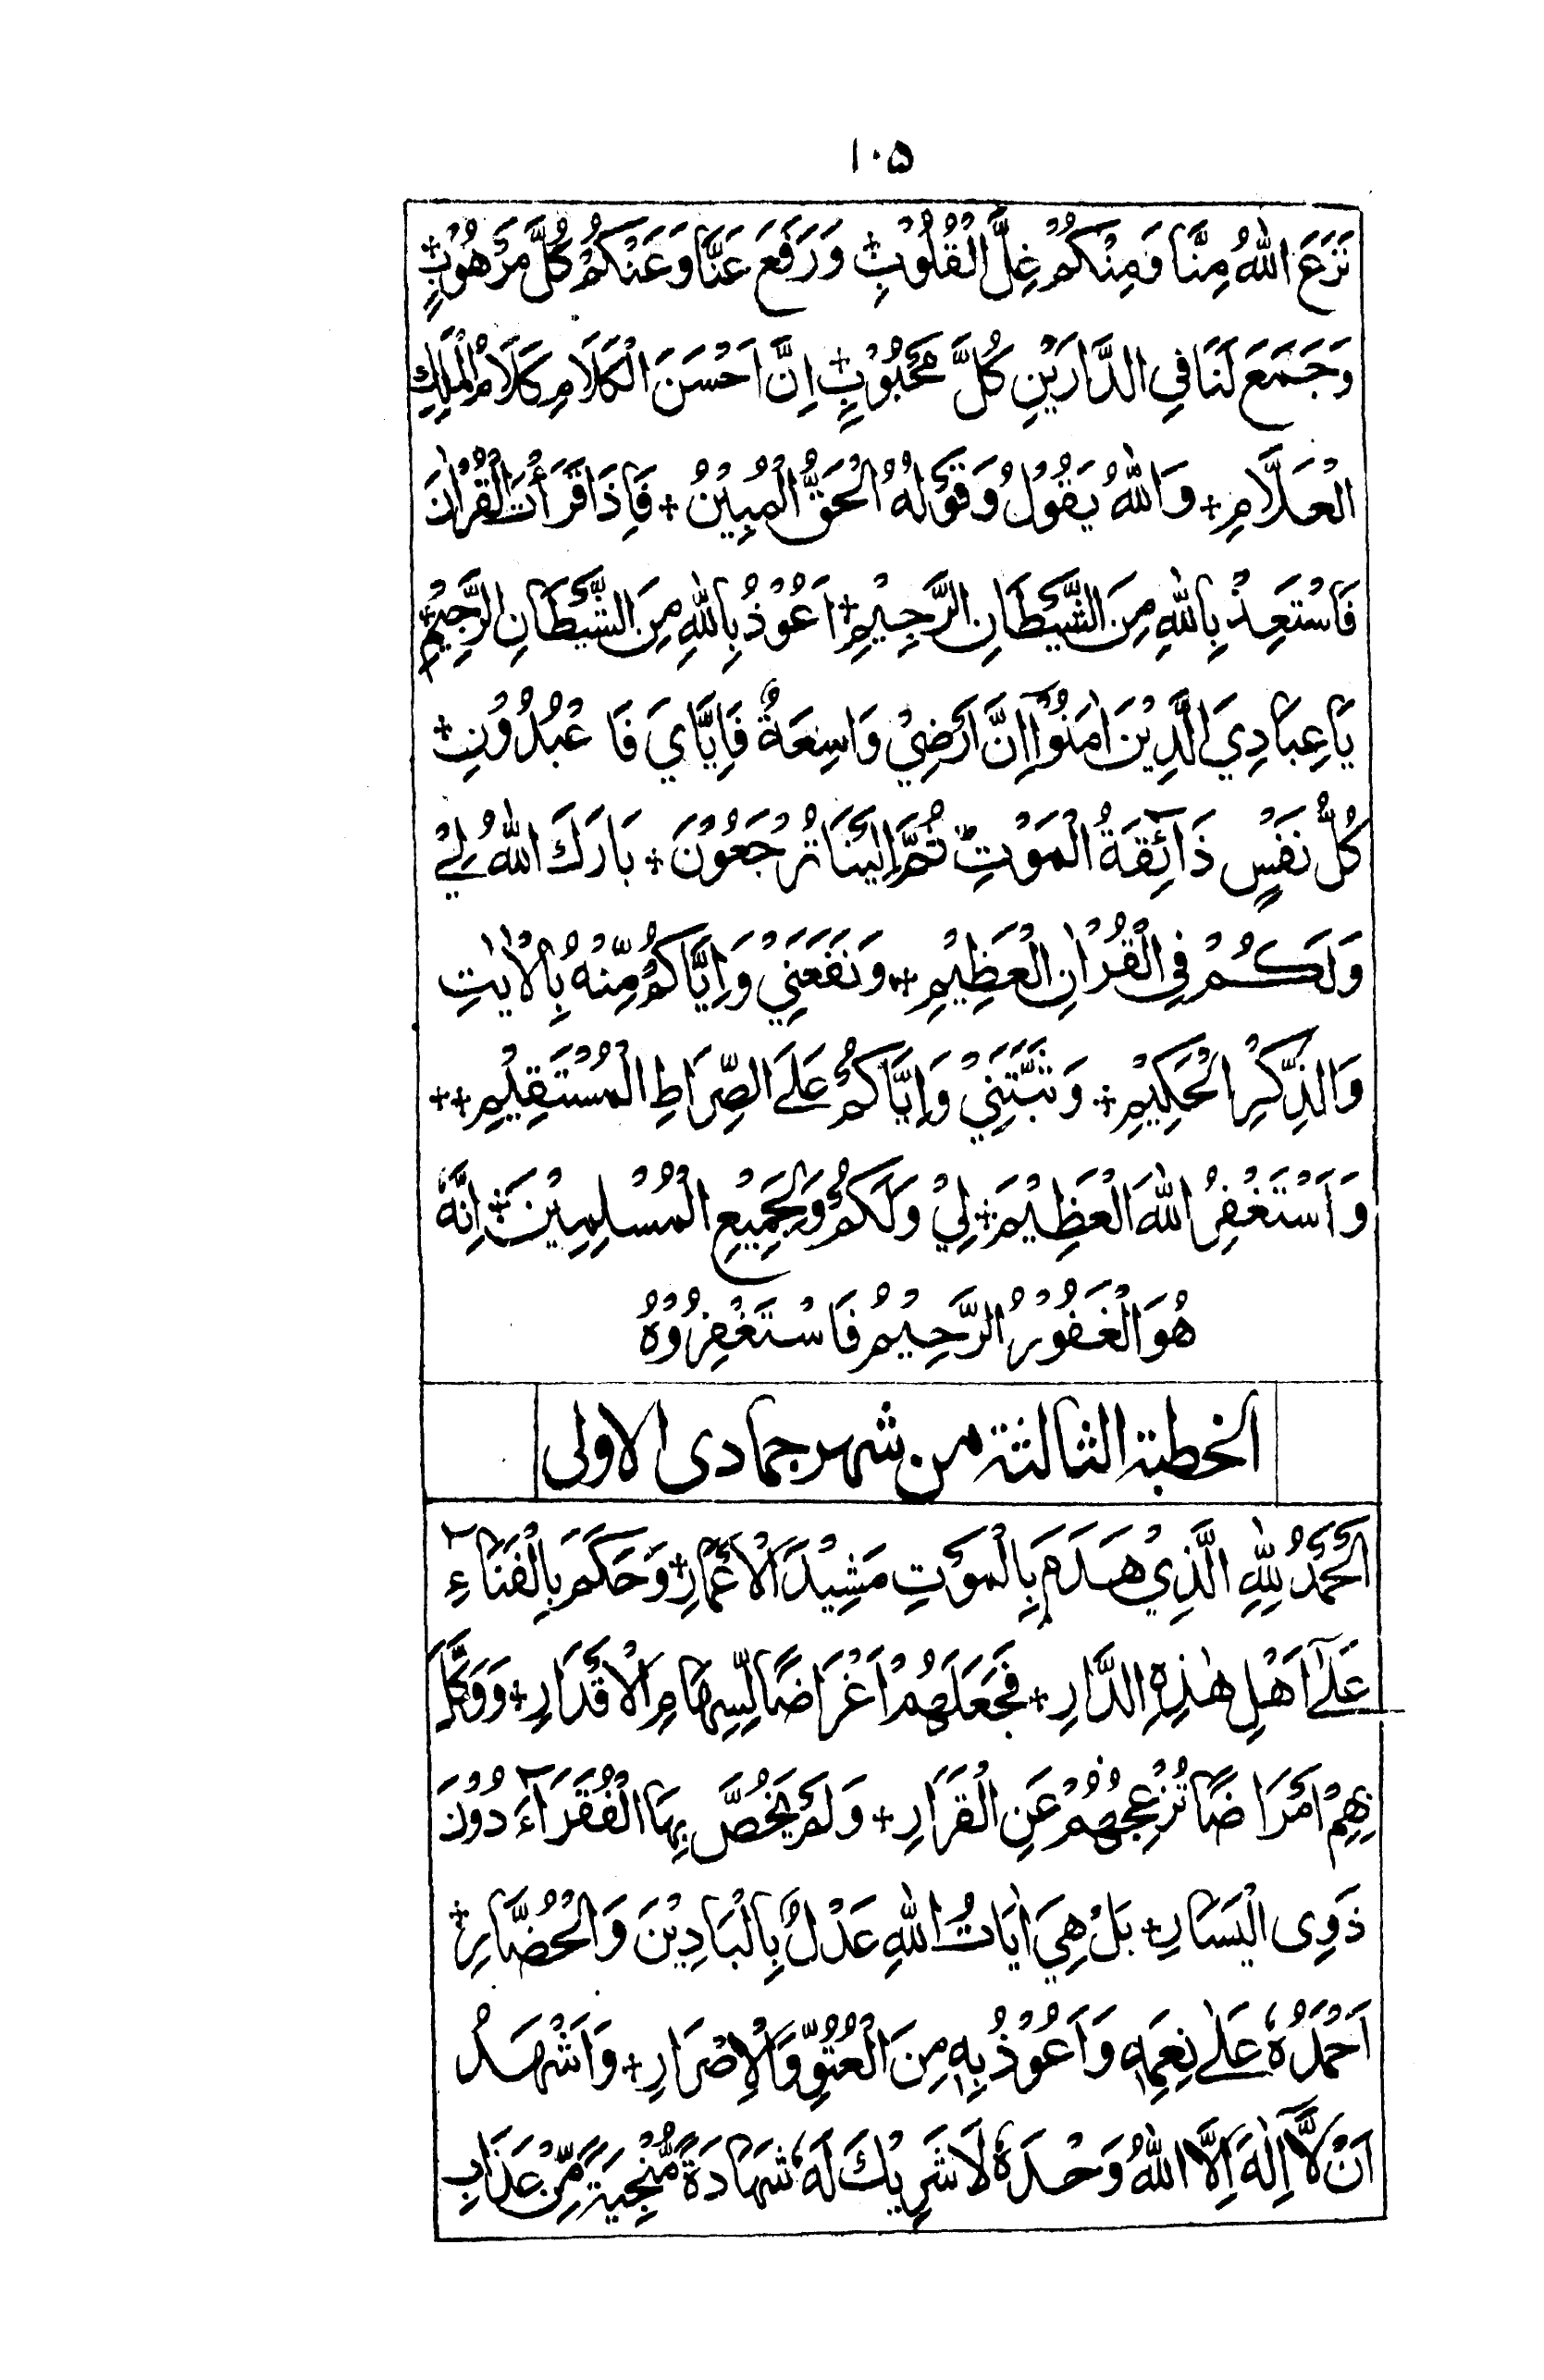 ۱۰۵
نَزَعَ اللّٰهُ مِنَّا وَمِنْكُمْ غِلَّ الْقُلُوْبِ + وَرَفَعَ عَنَّا وَعَنْكُمْ كُلَّ مَرْهُوْبٍ +
وَجَمَعَ لَنَا فِى الدَّارَيْنِ كُلَّ مَحْبُوْبٍ + اِنَّ اَحْسَنَ الْكَلَامِ كَلَامُ الْمَلِكِ
الْعَلَّامِ + وَاللّٰهُ يَقُوْلُ وَقَوْلُهُ الْحَقُّ الْمُبِيْنُ + فَاِذَا قَرَأْتَ الْقُرْاٰنَ
فَاسْتَعِذْ بِاللّٰهِ مِنَ الشَّيْطَانِ الرَّجِيْمِ + اَعُوْذُ بِاللّٰهِ مِنَ الشَّيْطَانِ الرَّجِيْمِ +
يَا عِبَادِيَ الَّذِيْنَ اٰمَنُوْا اِنَّ اَرْضِيْ وَاسِعَةٌ فَاِيَّايَ فَاعْبُدُوْنِ +
كُلُّ نَفْسٍ ذَآئِقَةُ الْمَوْتِ ثُمَّ اِلَيْنَا تُرْجَعُوْنَ + بَارَكَ اللّٰهُ لِيْ
وَلَكُمْ فِى الْقُرْاٰنِ الْعَظِيْمِ + وَنَفَعَنِيْ وَاِيَّاكُمْ مِّنْهُ بِالْاٰيٰتِ
وَالذِّكْرِ الْحَكِيْمِ + وَثَبَّتَنِيْ وَاِيَّاكُمْ عَلَى الصِّرَاطِ الْمُسْتَقِيْمِ ++
وَاَسْتَغْفِرُ اللّٰهَ الْعَظِيْمَ + لِيْ وَلَكُمْ وَلِجَمِيْعِ الْمُسْلِمِيْنَ + اِنَّهٗ
هُوَ الْغَفُوْرُ الرَّحِيْمُ فَاسْتَغْفِرُوْهُ
الخطبة الثالثة من شهر جمادى الاولى
اَلْحَمْدُ لِلّٰهِ الَّذِيْ هَدَمَ بِالْمَوْتِ مَشِيْدَ الْاَعْمَارِ + وَحَكَمَ بِالْفَنَآءِ
عَلٰٓى اَهْلِ هٰذِهِ الدَّارِ + فَجَعَلَهُمْ اَغْرَاضًا لِّسِهَامِ الْاَقْدَارِ + وَوَكَّلَ
بِهِمْ اَمْرَاضًا تُزْعِجُهُمْ عَنِ الْقَرَارِ + وَلَمْ يَخُصَّ بِهَا الْفُقَرَآءَ دُوْنَ
ذَوِى الْيَسَارِ + بَلْ هِيَ اٰيَاتُ اللّٰهِ عَدْلٌ بِالْبَادِيْنَ وَالْحُضَّارِ +
اَحْمَدُهٗ عَلٰى نِعَمِهٖ وَاَعُوْذُ بِهٖ مِنَ الْعُتُوِّ وَالْاِصْرَارِ + وَاَشْهَدُ
اَنْ لَّآ اِلٰهَ اِلَّا اللّٰهُ وَحْدَهٗ لَا شَرِيْكَ لَهٗ شَهَادَةً مُّنْجِيَةً مِّنْ عَذَابِ